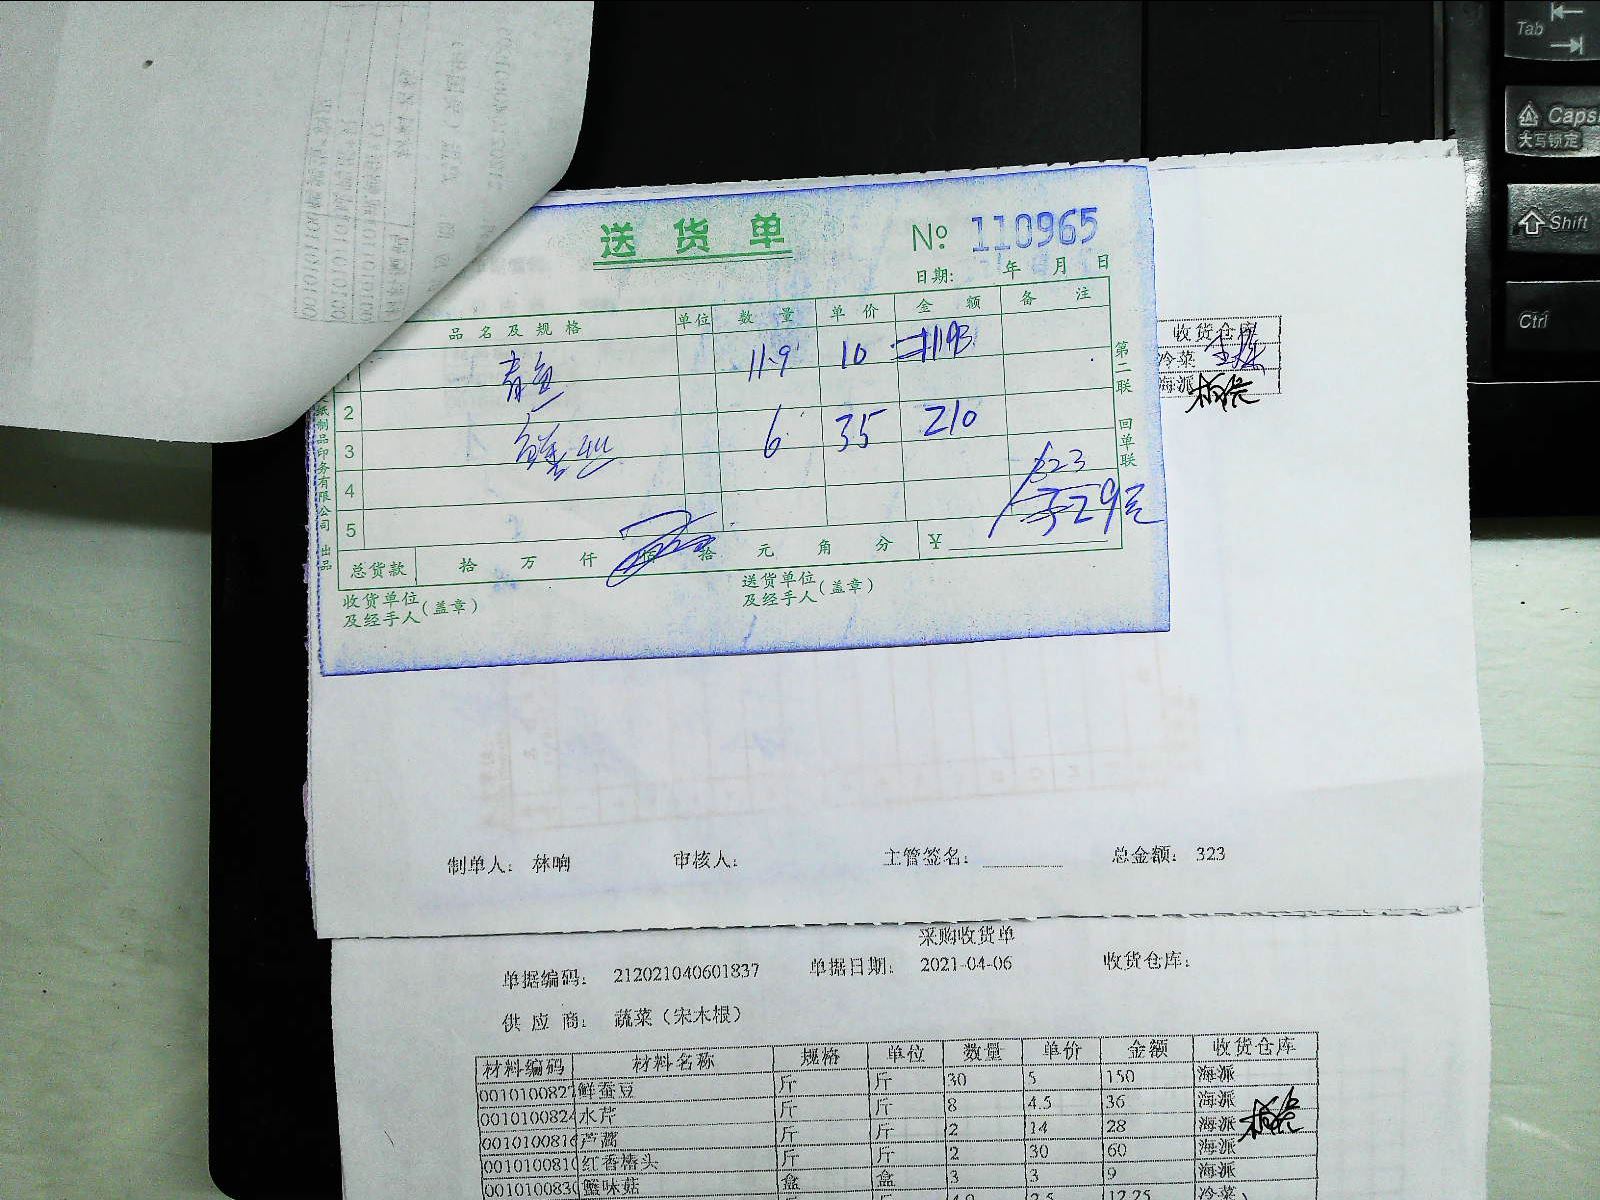 送货单 № 110965
日期: 年 月 日
品名及规格 单位 数量 单价 金额 备注
青鱼 11.9 10 =119
2
3 鳝丝 6 35 210
4
5
323
329元
总货款 拾 万 仟 佰 拾 元 角 分 ¥
收货单位及经手人(盖章) 送货单位及经手人(盖章)
第二联 回单联
纸制品印务有限公司 出品
收货仓库
冷菜
海派
制单人: 林响 审核人: 主管签名: 总金额: 323
采购收货单
单据编码: 212021040601837 单据日期: 2021-04-06 收货仓库:
供应商: 蔬菜(宋木根)
材料编码 材料名称 规格 单位 数量 单价 金额 收货仓库
0010100827 鲜蚕豆 斤 斤 30 5 150 海派
0010100824 水芹 斤 斤 8 4.5 36 海派
001010081 芦蒿 斤 斤 2 14 28 海派
001010081 红香椿头 斤 斤 2 30 60 海派
001010083 蟹味菇 盒 盒 3 3 9 海派
12.25 冷菜
Tab
Caps
大写锁定
Shift
Ctrl